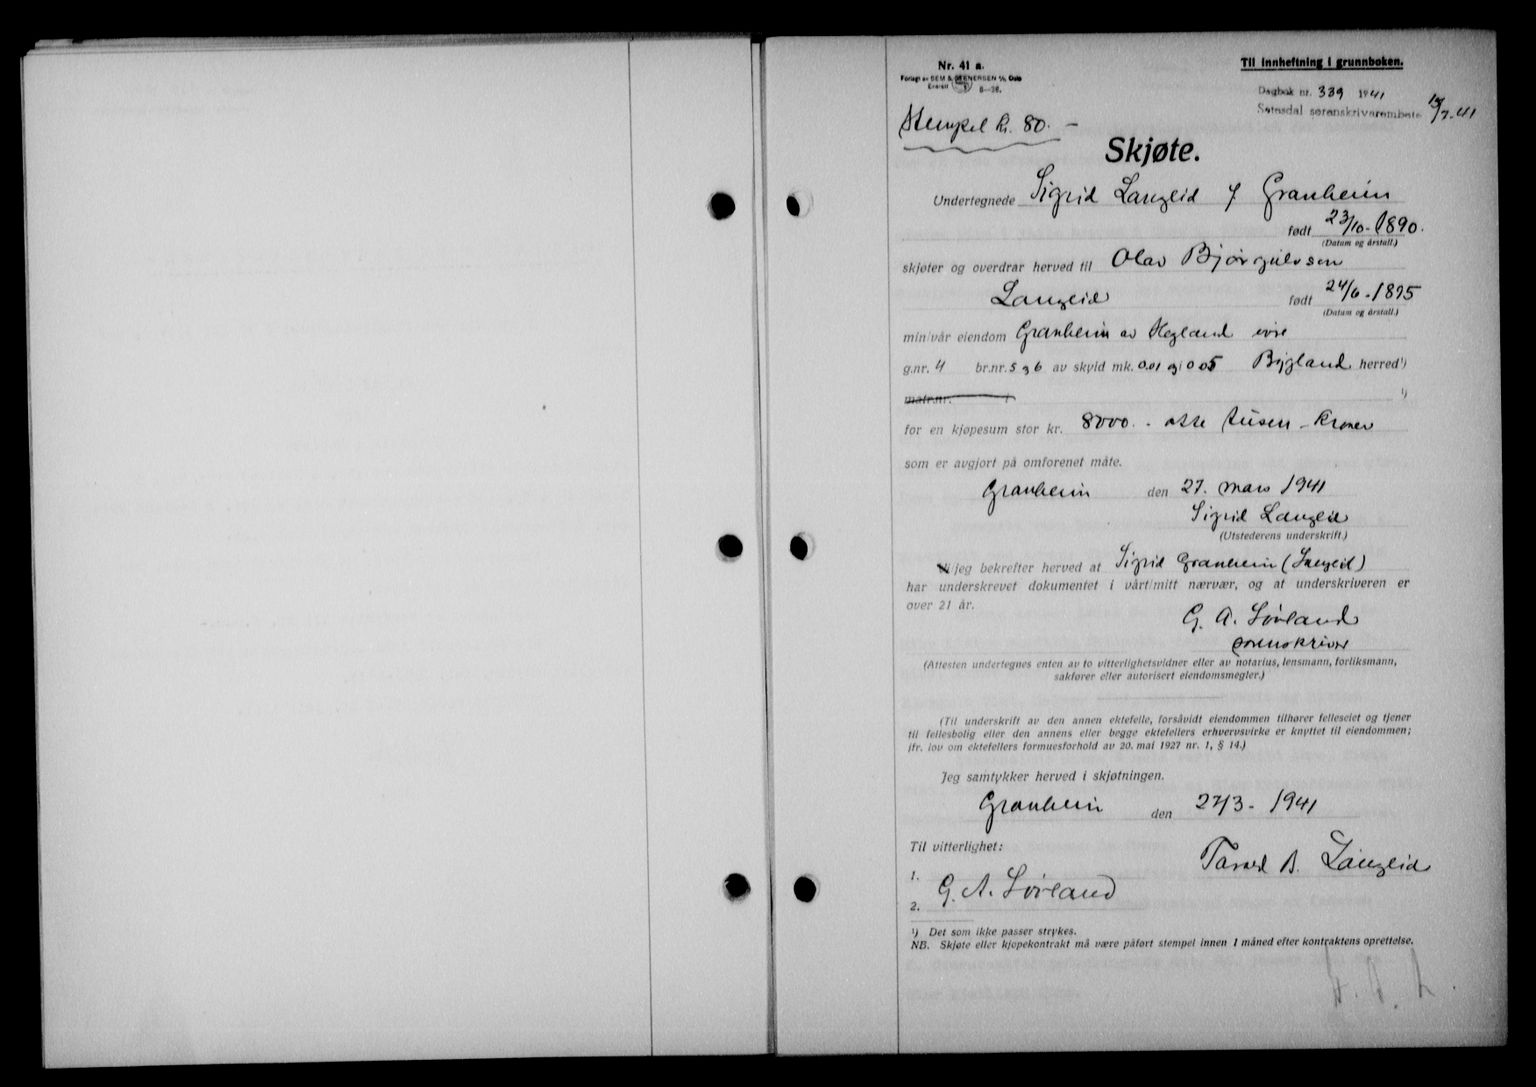 Nr. 41 a.
Forlagt av SEM & STENERSEN A/S Oslo
Enerett 6—38.
Til innheftning i grunnboken.
Dagbok nr. 339 1941
Setesdal sorenskrivarembete 41
Stempel kr. 80. —
Skjøte.
Undertegnede Sigrid Langeid f Granheim
født 23/10-1890.
(Datum og årstall.)
skjøter og overdrar herved til Olav Bjørgulvsen
Langeid født 24/6-1895
(Datum og årstall.)
min/vår eiendom Granheim av Hegland
g.nr. 4 br.nr. 5 og 6 av skyld mk. 0.01 og 0 05 Bygland herred¹)
matr.nr. ¹)
for en kjøpesum stor kr. 8000.- otte tusen - kroner
som er avgjort på omforenet måte.
Granheim den 27. mars 1941
Sigrid Langeid
(Utstederens underskrift.)
Vi/jeg bekrefter herved at Sigrid Granheim (Langeid)
har underskrevet dokumentet i vårt/mitt nærvær, og at underskriveren er
over 21 år.
G. A. Sørland
sorenskriver
(Attesten undertegnes enten av to vitterlighetsvidner eller av notarius, lensmann, forliksmann,
sakfører eller autorisert eiendomsmegler.)
(Til underskrift av den annen ektefelle, forsåvidt eiendommen tilhører felleseiet og tjener
til fellesbolig eller den annens eller begge ektefellers erhvervsvirke er knyttet til eiendommen;
jfr. lov om ektefellers formuesforhold av 20. mai 1927 nr. 1, § 14.)
Jeg samtykker herved i skjøtningen.
Granheim den 27/3 - 1941
Til vitterlighet:
B. Langeid
1.
G. A. Sørland
2.
¹) Det som ikke passer strykes.
NB. Skjøte eller kjøpekontrakt må være påført stempel innen 1 måned efter kontraktens oprettelse.